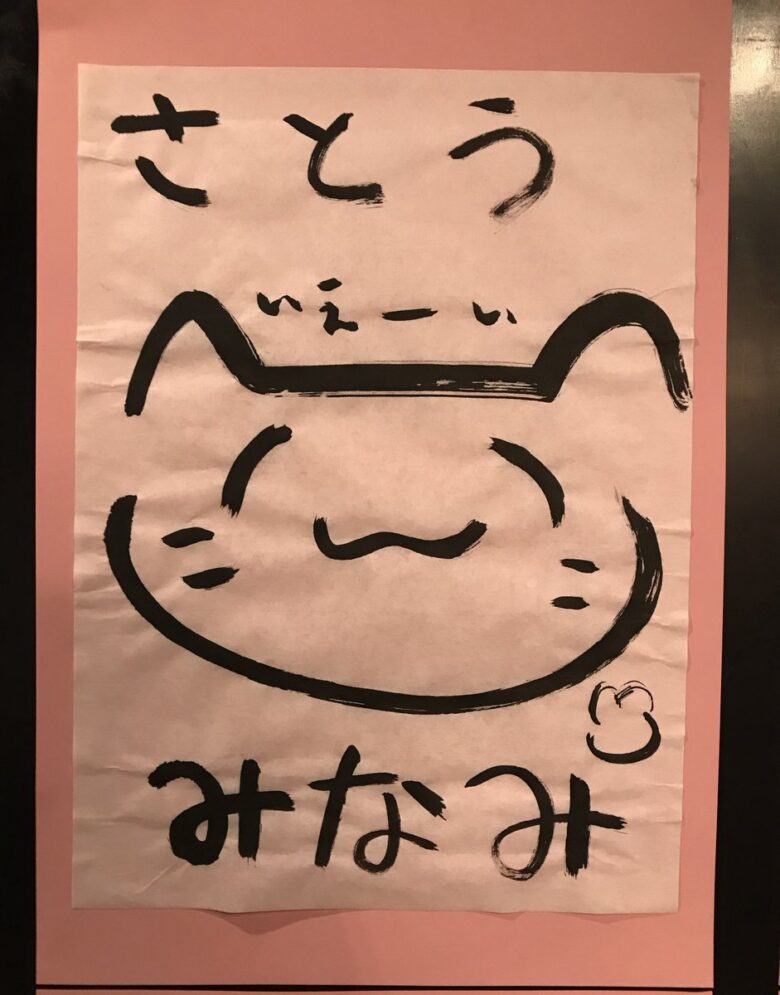 さとう
いえーい
みなみ